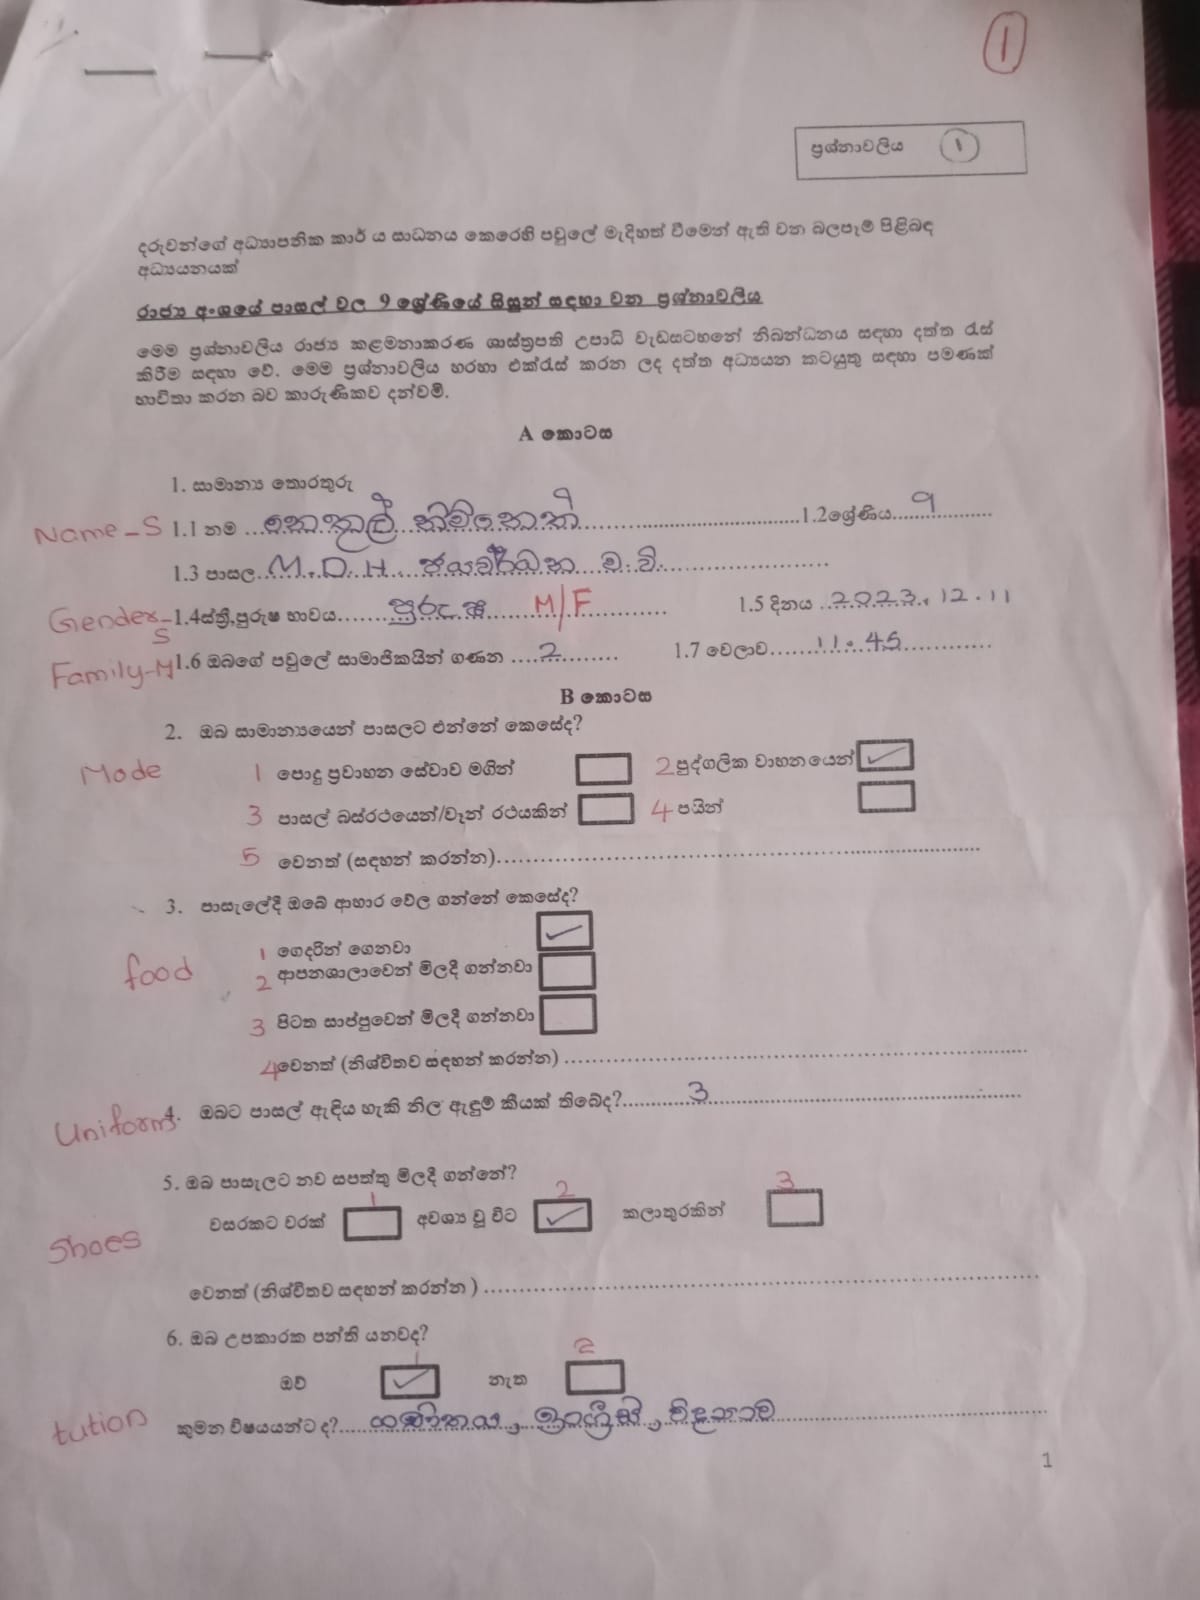 1
ප්‍රශ්නාවලිය 1
දරුවන්ගේ අධ්‍යාපනික කාර් ය සාධනය කෙරෙහි පවුලේ මැදිහත් වීමෙන් ඇති වන බලපෑම් පිළිබඳ
අධ්‍යයනයක්
රාජ්‍ය අංශයේ පාසල් වල 9 ශ්‍රේණියේ සිසුන් සඳහා වන ප්‍රශ්නාවලිය
මෙම ප්‍රශ්නාවලිය රාජ්‍ය කළමනාකරණ ශාස්ත්‍රපති උපාධි වැඩසටහනේ නිබන්ධනය සඳහා දත්ත රැස්
කිරීම සඳහා වේ. මෙම ප්‍රශ්නාවලිය හරහා එක්රැස් කරන ලද දත්ත අධ්‍යයන කටයුතු සඳහා පමණක්
භාවිතා කරන බව කාරුණිකව දන්වමි.
A කොටස
1. සාමාන්‍ය තොරතුරු
Name - S 1.1 නම ... 1.2ශ්‍රේණිය...9...
1.3 පාසල... M.D.H. ජයවර්ධන ම. වි. ...
Gender - S 1.4ස්ත්‍රී,පුරුෂ භාවය... පුරුෂ M/F ... 1.5 දිනය ...2023.12.11
Family-M 1.6 ඔබගේ පවුලේ සාමාජිකයින් ගණන ...2... 1.7 වෙලාව...11.45...
B කොටස
2. ඔබ සාමාන්‍යයෙන් පාසලට එන්නේ කෙසේද?
Mode 1 පොදු ප්‍රවාහන සේවාව මගින් 2 පුද්ගලික වාහනයෙන් ✓
3 පාසල් බස්රථයෙන්/වෑන් රථයකින් 4 පයින්
5 වෙනත් (සඳහන් කරන්න)...
3. පාසැලේදී ඔබේ ආහාර වේල ගන්නේ කෙසේද?
1 ගෙදරින් ගෙනවා ✓
food 2 ආපනශාලාවෙන් මිලදී ගන්නවා
3 පිටත සාප්පුවෙන් මිලදී ගන්නවා
4 වෙනත් (නිශ්චිතව සඳහන් කරන්න) ...
Uniform 4. ඔබට පාසල් ඇඳිය හැකි නිල ඇඳුම් කීයක් තිබේද?...3...
5. ඔබ පාසැලට නව සපත්තු මිලදී ගන්නේ?
Shoes වසරකට වරක් 1 අවශ්‍ය වූ විට 2 ✓ කලාතුරකින් 3
වෙනත් (නිශ්චිතව සඳහන් කරන්න ) ...
6. ඔබ උපකාරක පන්ති යනවද?
ඔව් 1 ✓ නැත 2
tution කුමන විෂයයන්ටද?... ගණිතය, ඉංග්‍රීසි, විද්‍යාව ...
1